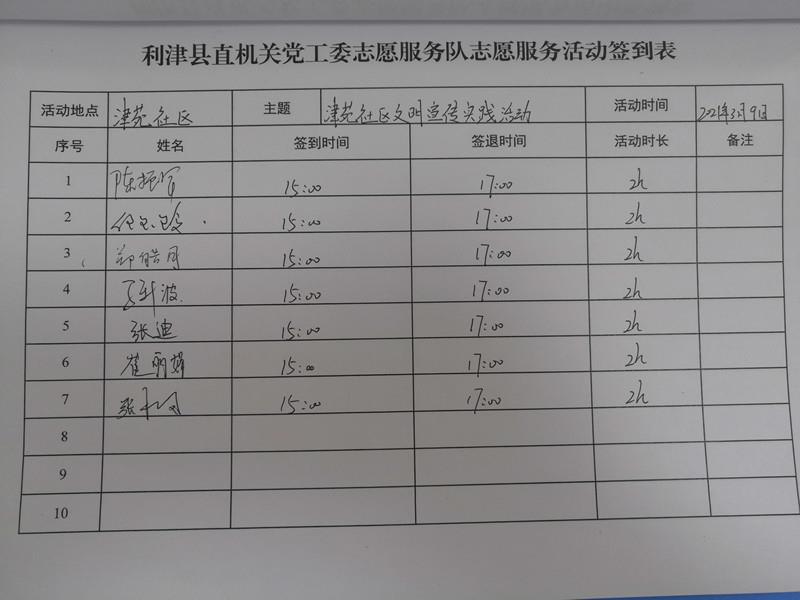 利津县直机关党工委志愿服务队志愿服务活动签到表
活动地点 津苑社区 主题 津苑社区文明宣传实践活动 活动时间 2021年3月9日
序号 姓名 签到时间 签退时间 活动时长 备注
1 陈振军 15:00 17:00 2h
2 15:00 17:00 2h
3 郑皓月 15:00 17:00 2h
4 15:00 17:00 2h
5 张迪 15:00 17:00 2h
6 崔丽娟 15:00 17:00 2h
7 张 15:00 17:00 2h
8
9
10